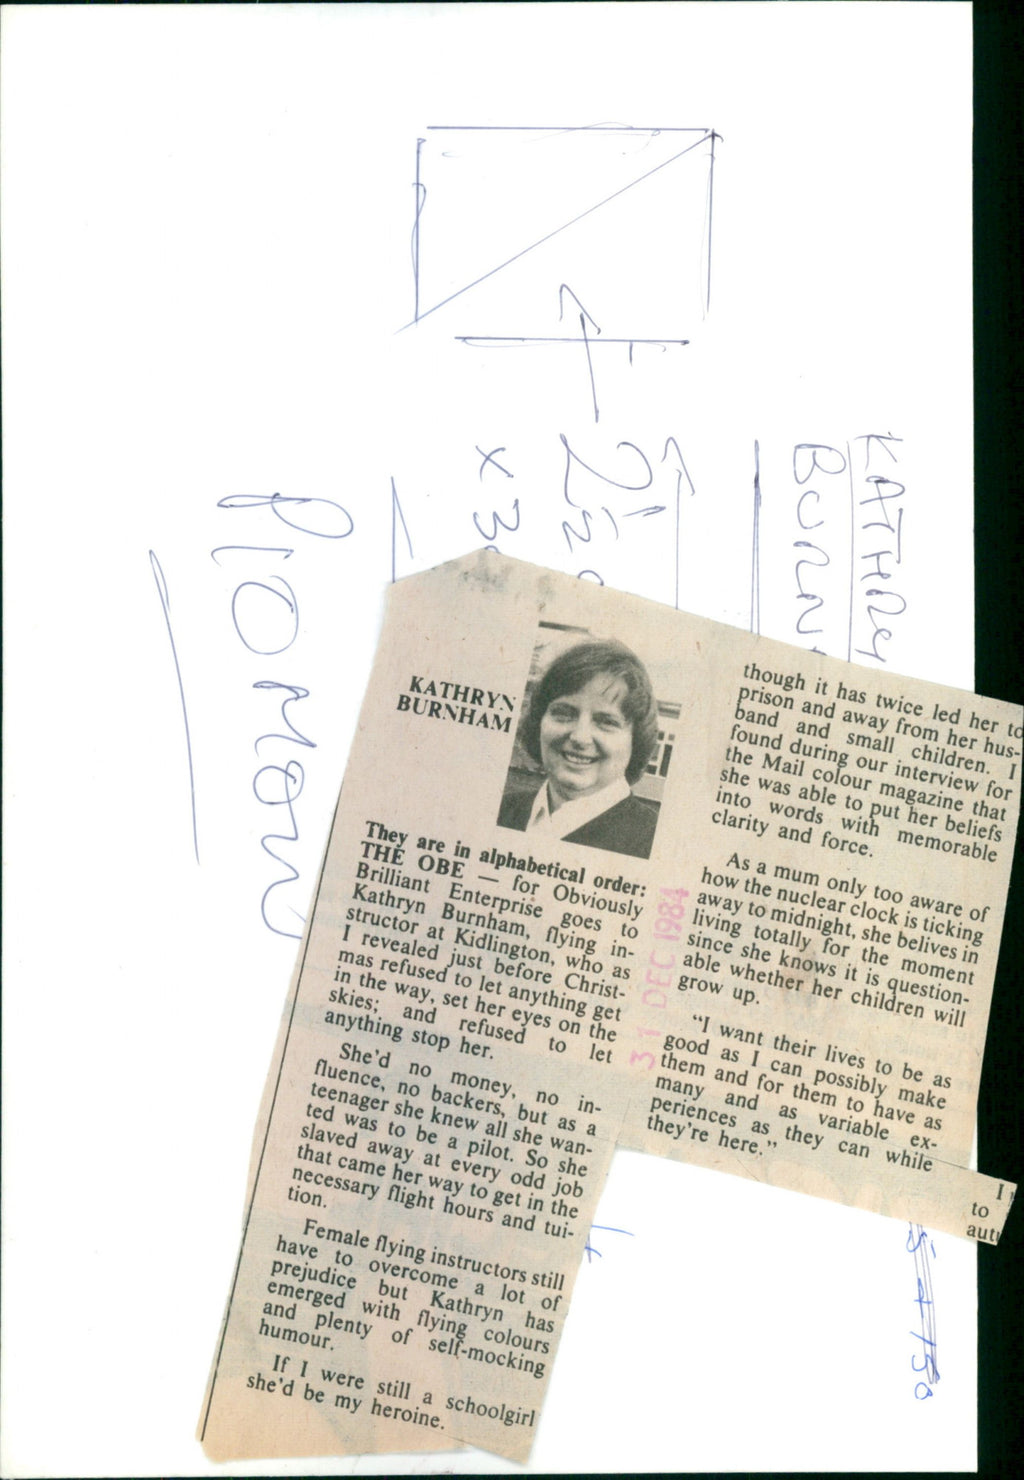 KATHRY
BURN
2½
x 3
PIOMON
KATHRYN
BURNHAM
They are in alphabetical order:
THE OBE — for Obviously
Brilliant Enterprise goes to
Kathryn Burnham, flying in-
structor at Kidlington, who as
I revealed just before Christ-
mas refused to let anything get
in the way, set her eyes on the
skies; and refused to let
anything stop her.
She'd no money, no in-
fluence, no backers, but as a
teenager she knew all she wan-
ted was to be a pilot. So she
slaved away at every odd job
that came her way to get in the
necessary flight hours and tui-
tion.
Female flying instructors still
have to overcome a lot of
prejudice but Kathryn has
emerged with flying colours
and plenty of self-mocking
humour.
If I were still a schoolgirl
she'd be my heroine.
31 DEC 1984
though it has twice led her to
prison and away from her hus-
band and small children. I
found during our interview for
the Mail colour magazine that
she was able to put her beliefs
into words with memorable
clarity and force.
As a mum only too aware of
how the nuclear clock is ticking
away to midnight, she belives in
living totally for the moment
since she knows it is question-
able whether her children will
grow up.
"I want their lives to be as
good as I can possibly make
them and for them to have as
many and as variable ex-
periences as they can while
they're here."
I
to
aut